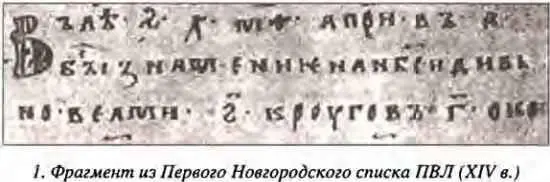 Въ лѣ҃ · ѕ҃ · х҃ · м҃ѳ · апри · въ · д ·
бъі знамениѥ на нб҃си дивь
но · велми · ѕ҃ · кроуговъ · г҃ · око
1. Фрагмент из Первого Новгородского списка ПВЛ (XIV в.)